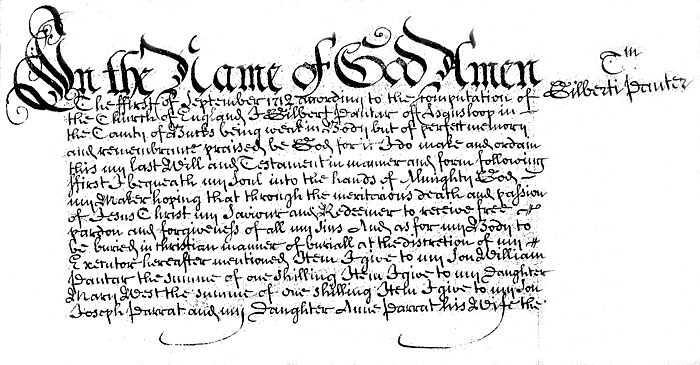 In the Name of God Amen
Tm
Gilberti Panter
The ffirst of September 1712 according to the computation of
the Church of England I Gilbert Pantar off Hansloop in
the County of Bucks being weak in Body but of perfect memory
and remembrance praised be God for it I do make and ordain
this my last Will and Testament in manner and form following
ffirst I bequeath my Soul into the hands of Almighty God
my Maker hoping that through the meritorous death and passion
of Jesus Christ my Saviour and Redeemer to receive free
pardon and forgiveness of all my sins And as for my Body to
be buried in christian manner of buriall at the discretion of my
Executor hereafter mentioned Item I give to my Son William
Pantar the summe of one shilling Item I give to my Daughter
Mary West the summe of one shilling Item I give to my Son
Joseph Parrat and my Daughter Anne Parrat his Wife the